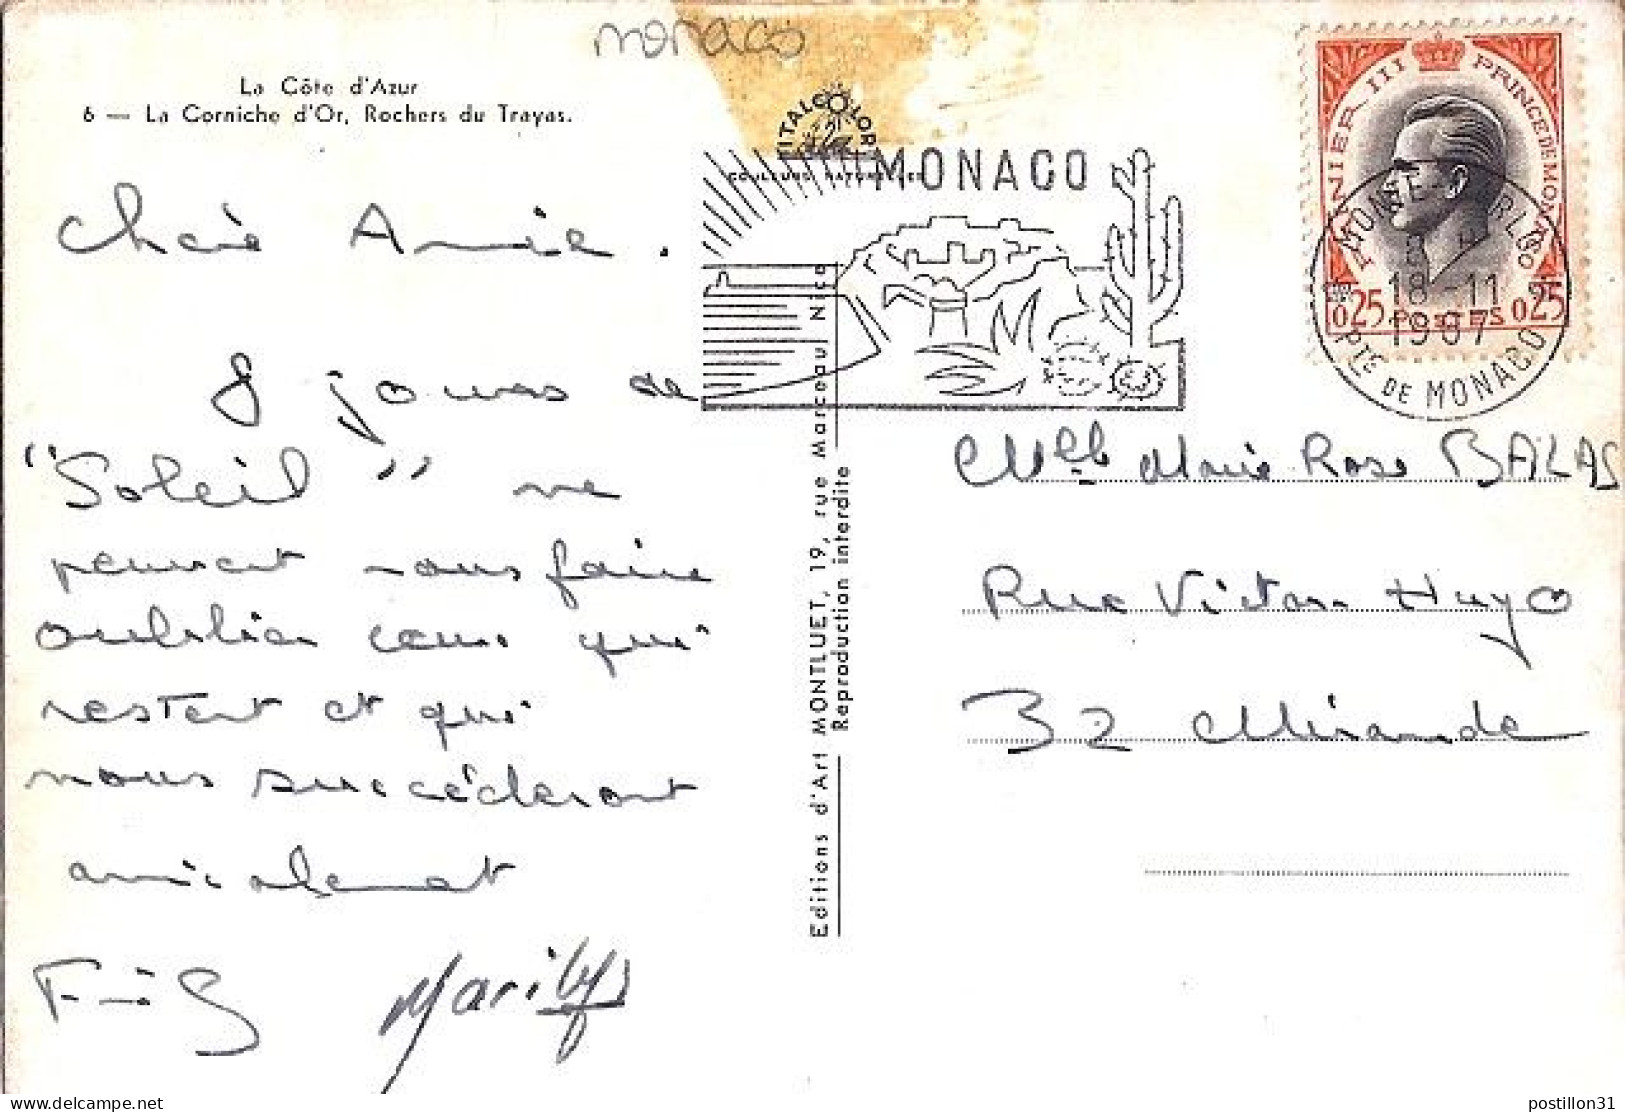 monaco
La Côte d'Azur
6 — La Corniche d'Or, Rochers du Trayas.
ITALCOLOR
COULEURS NATURELLES
MONACO
RAINIER III PRINCE DE MONACO
0.25 POSTES 0.25
MONTE-CARLO
18-11
1967
PTÉ DE MONACO
Chère Amie.
8 jours de
"Soleil" ne
peuvent nous faire
oublier ceux qui
restent et qui
nous succéderont
amicalement
Marilys
Editions d'Art MONTLUET, 19, rue Marceau, Nice
Reproduction interdite
Mlle Marie Rose BALAS
Rue Victor Hugo
32 Mirande
www.delcampe.net
postillon31